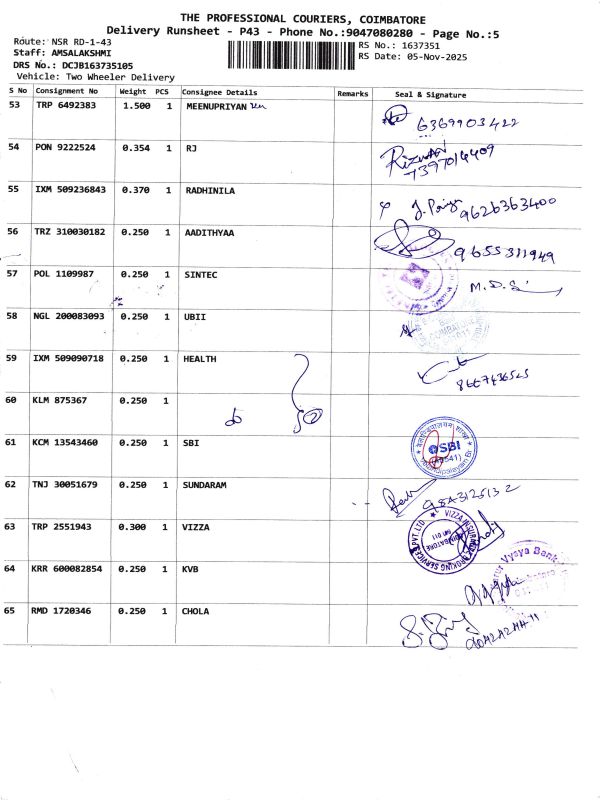 THE PROFESSIONAL COURIERS, COIMBATORE
Delivery Runsheet - P43 - Phone No.:9047080280 - Page No.:5
Route: NSR RD-1-43
RS No.: 1637351
Staff: AMSALAKSHMI
RS Date: 05-Nov-2025
DRS No.: DCJB163735105
Vehicle: Two Wheeler Delivery
S No Consignment No Weight PCS Consignee Details Remarks Seal & Signature
53 TRP 6492383 1.500 1 MEENUPRIYAN
6369903422
54 PON 9222524 0.354 1 RJ
Rizwan
7397016409
55 IXM 509236843 0.370 1 RADHINILA
J. Priya 9626363400
56 TRZ 310030182 0.250 1 AADITHYAA
9655311949
57 POL 1109987 0.250 1 SINTEC
58 NGL 200083093 0.250 1 UBII
59 IXM 509090718 0.250 1 HEALTH
8667436525
60 KLM 875367 0.250 1
61 KCM 13543460 0.250 1 SBI
SBI
62 TNJ 30051679 0.250 1 SUNDARAM
9843125132
63 TRP 2551943 0.300 1 VIZZA
VIZZA INSURANCE BROKING SERVICES PVT. LTD
COIMBATORE
64 KRR 600082854 0.250 1 KVB
Vysya Bank
65 RMD 1720346 0.250 1 CHOLA